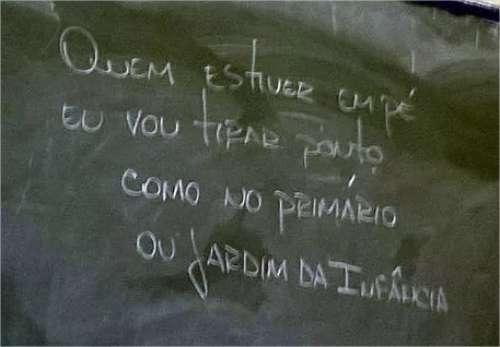 Quem estiver em pé
eu vou tirar ponto
como no primário
ou Jardim da Infância